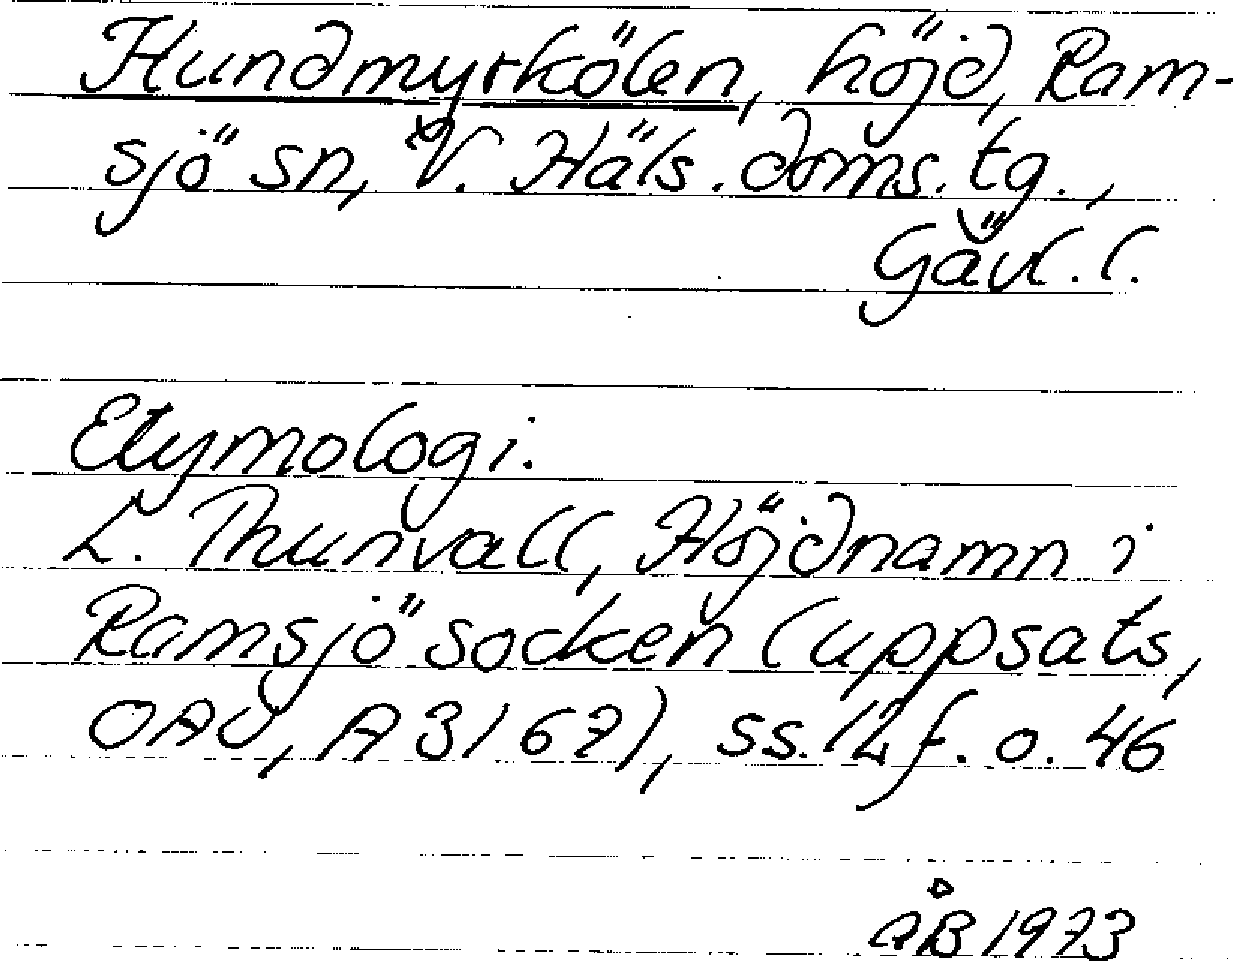 Hundmyrkölen, höjd, Ram-
sjö sn, V. Häls. doms. tg.,
Gävl. l.
Etymologi.
L. Thunvall, Höjdnamn i
Ramsjö socken (uppsats,
OAU, A 3167), ss. 12 f. o. 46
ÅB 1973